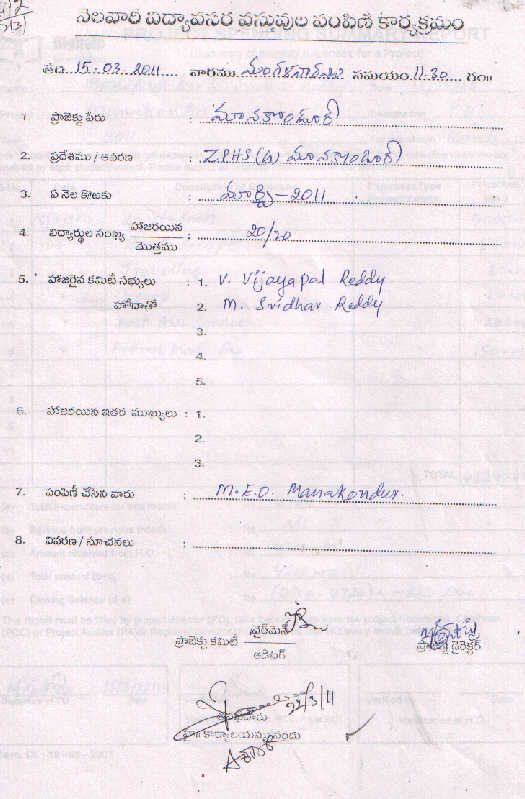 నెలవారి విద్యావసర వస్తువుల పంపిణి కార్యక్రమం
తేది. 15.03.2011 వారము మంగళవారము సమయం. 11.30 గం॥
1. ప్రాజెక్టు పేరు : మానకొండూర్
2. ప్రదేశము / ఆవరణ : Z.P.H.S మానకొండూర్
3. ఏ నెల కొఱకు : మార్చి - 2011
4. విద్యార్థుల సంఖ్య హాజరయిన / మొత్తము : 20/20
5. హాజరైన కమిటీ సభ్యులు : 1. V. Vijayapal Reddy
హోదాతో 2. M. Sridhar Reddy
3.
4.
5.
6. హాజరయిన ఇతర ముఖ్యులు : 1.
2.
3.
7. పంపిణీ చేసిన వారు : M.E.O. Manakondur.
8. వివరణ / సూచనలు :
ప్రాజెక్టు కమిటీ ఛైర్మెన్ / ఆఫీసర్
ప్రాజెక్ట్ డైరెక్టర్
22/3/11